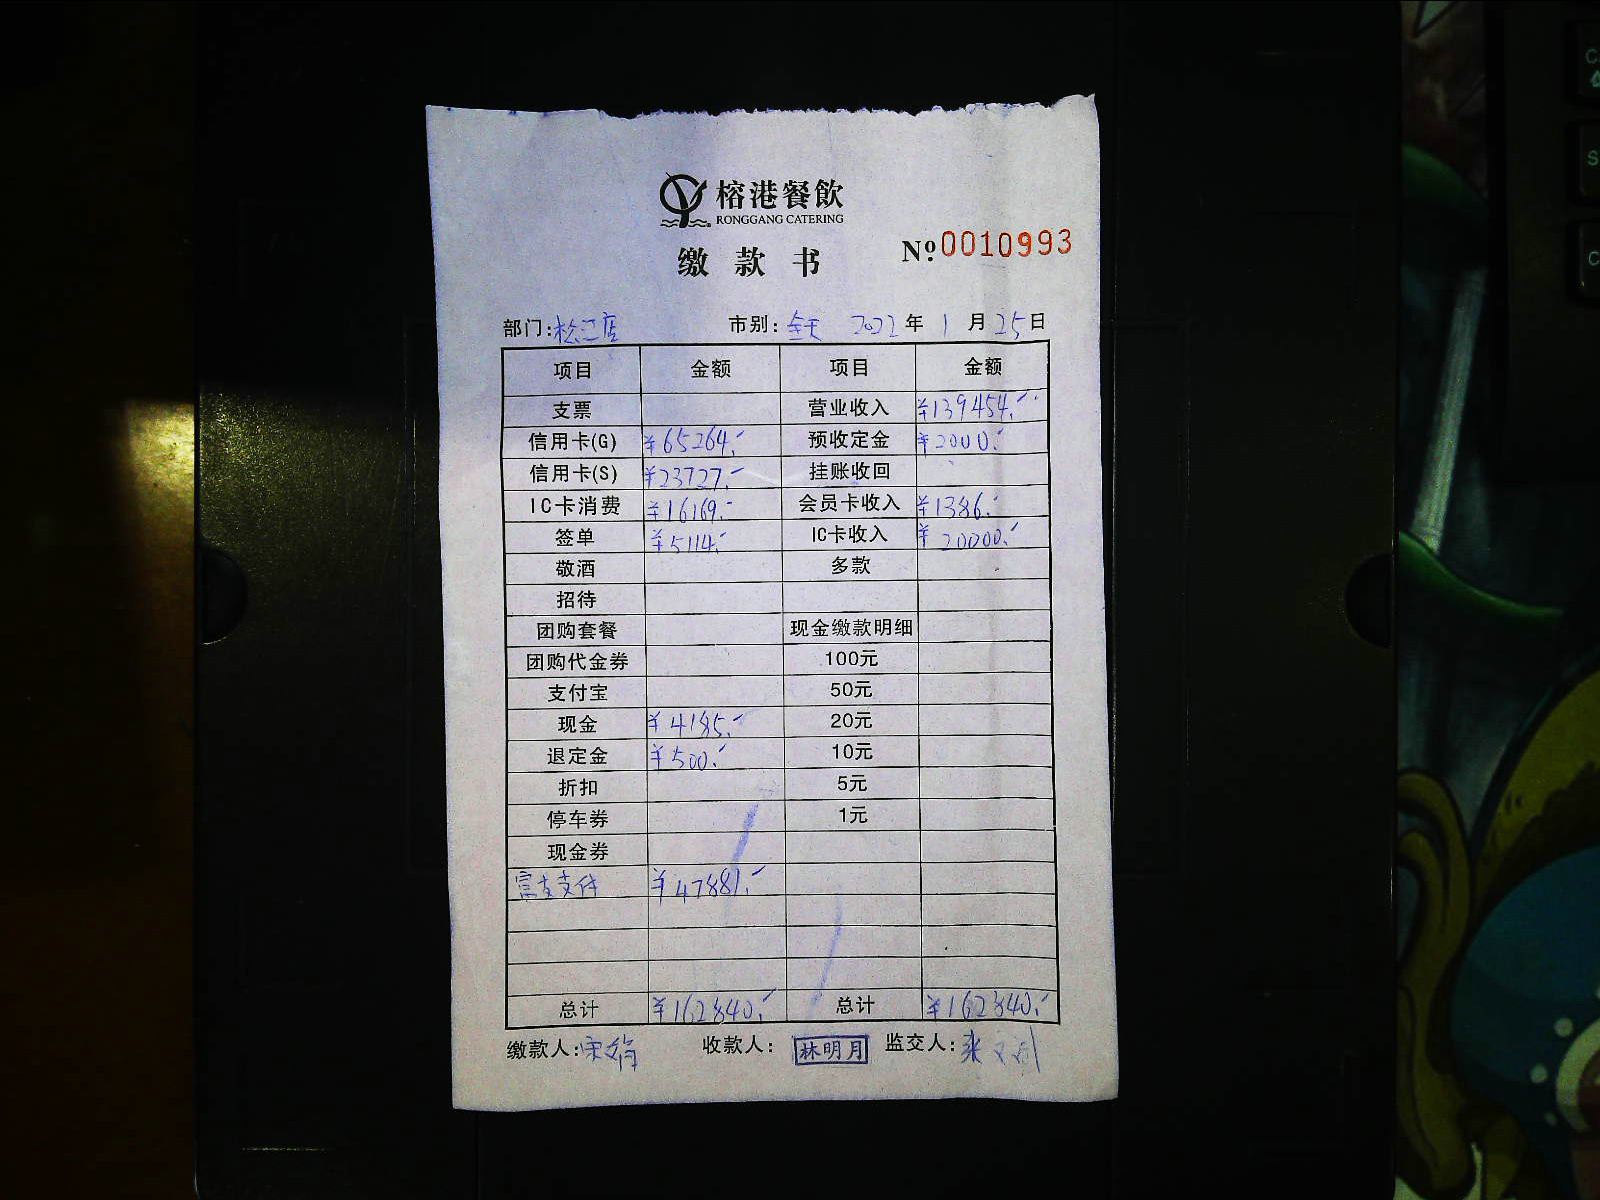 榕港餐飲
RONGGANG CATERING
缴款书 Nº 0010993
部门:松江店 市别:全天 2022年1月25日
项目 金额 项目 金额
支票 营业收入 ¥139454.-
信用卡(G) ¥65264.- 预收定金 ¥2000.-
信用卡(S) ¥23727.- 挂账收回
IC卡消费 ¥16169.- 会员卡收入 ¥1386.-
签单 ¥5114.- IC卡收入 ¥20000.-
敬酒 多款
招待
团购套餐 现金缴款明细
团购代金券 100元
支付宝 50元
现金 ¥4185.- 20元
退定金 ¥500.- 10元
折扣 5元
停车券 1元
现金券
富友支付 ¥47881.-
总计 ¥162840.- 总计 ¥162840.-
缴款人: 收款人: 林明月 监交人: